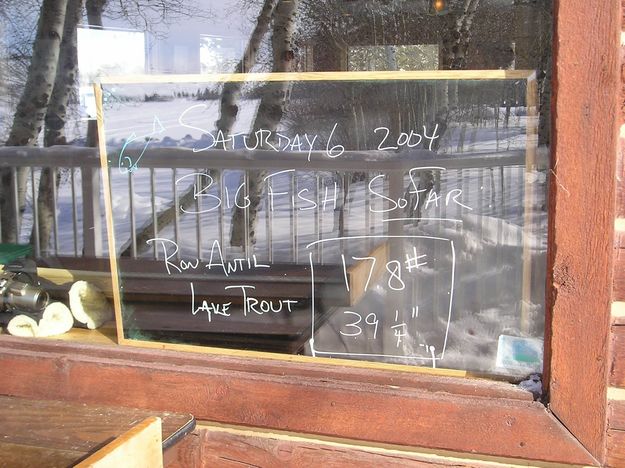 SATURDAY 6 2004
BIG FISH SO FAR
RON ANTIL
LAKE TROUT
178#
39 1/4"